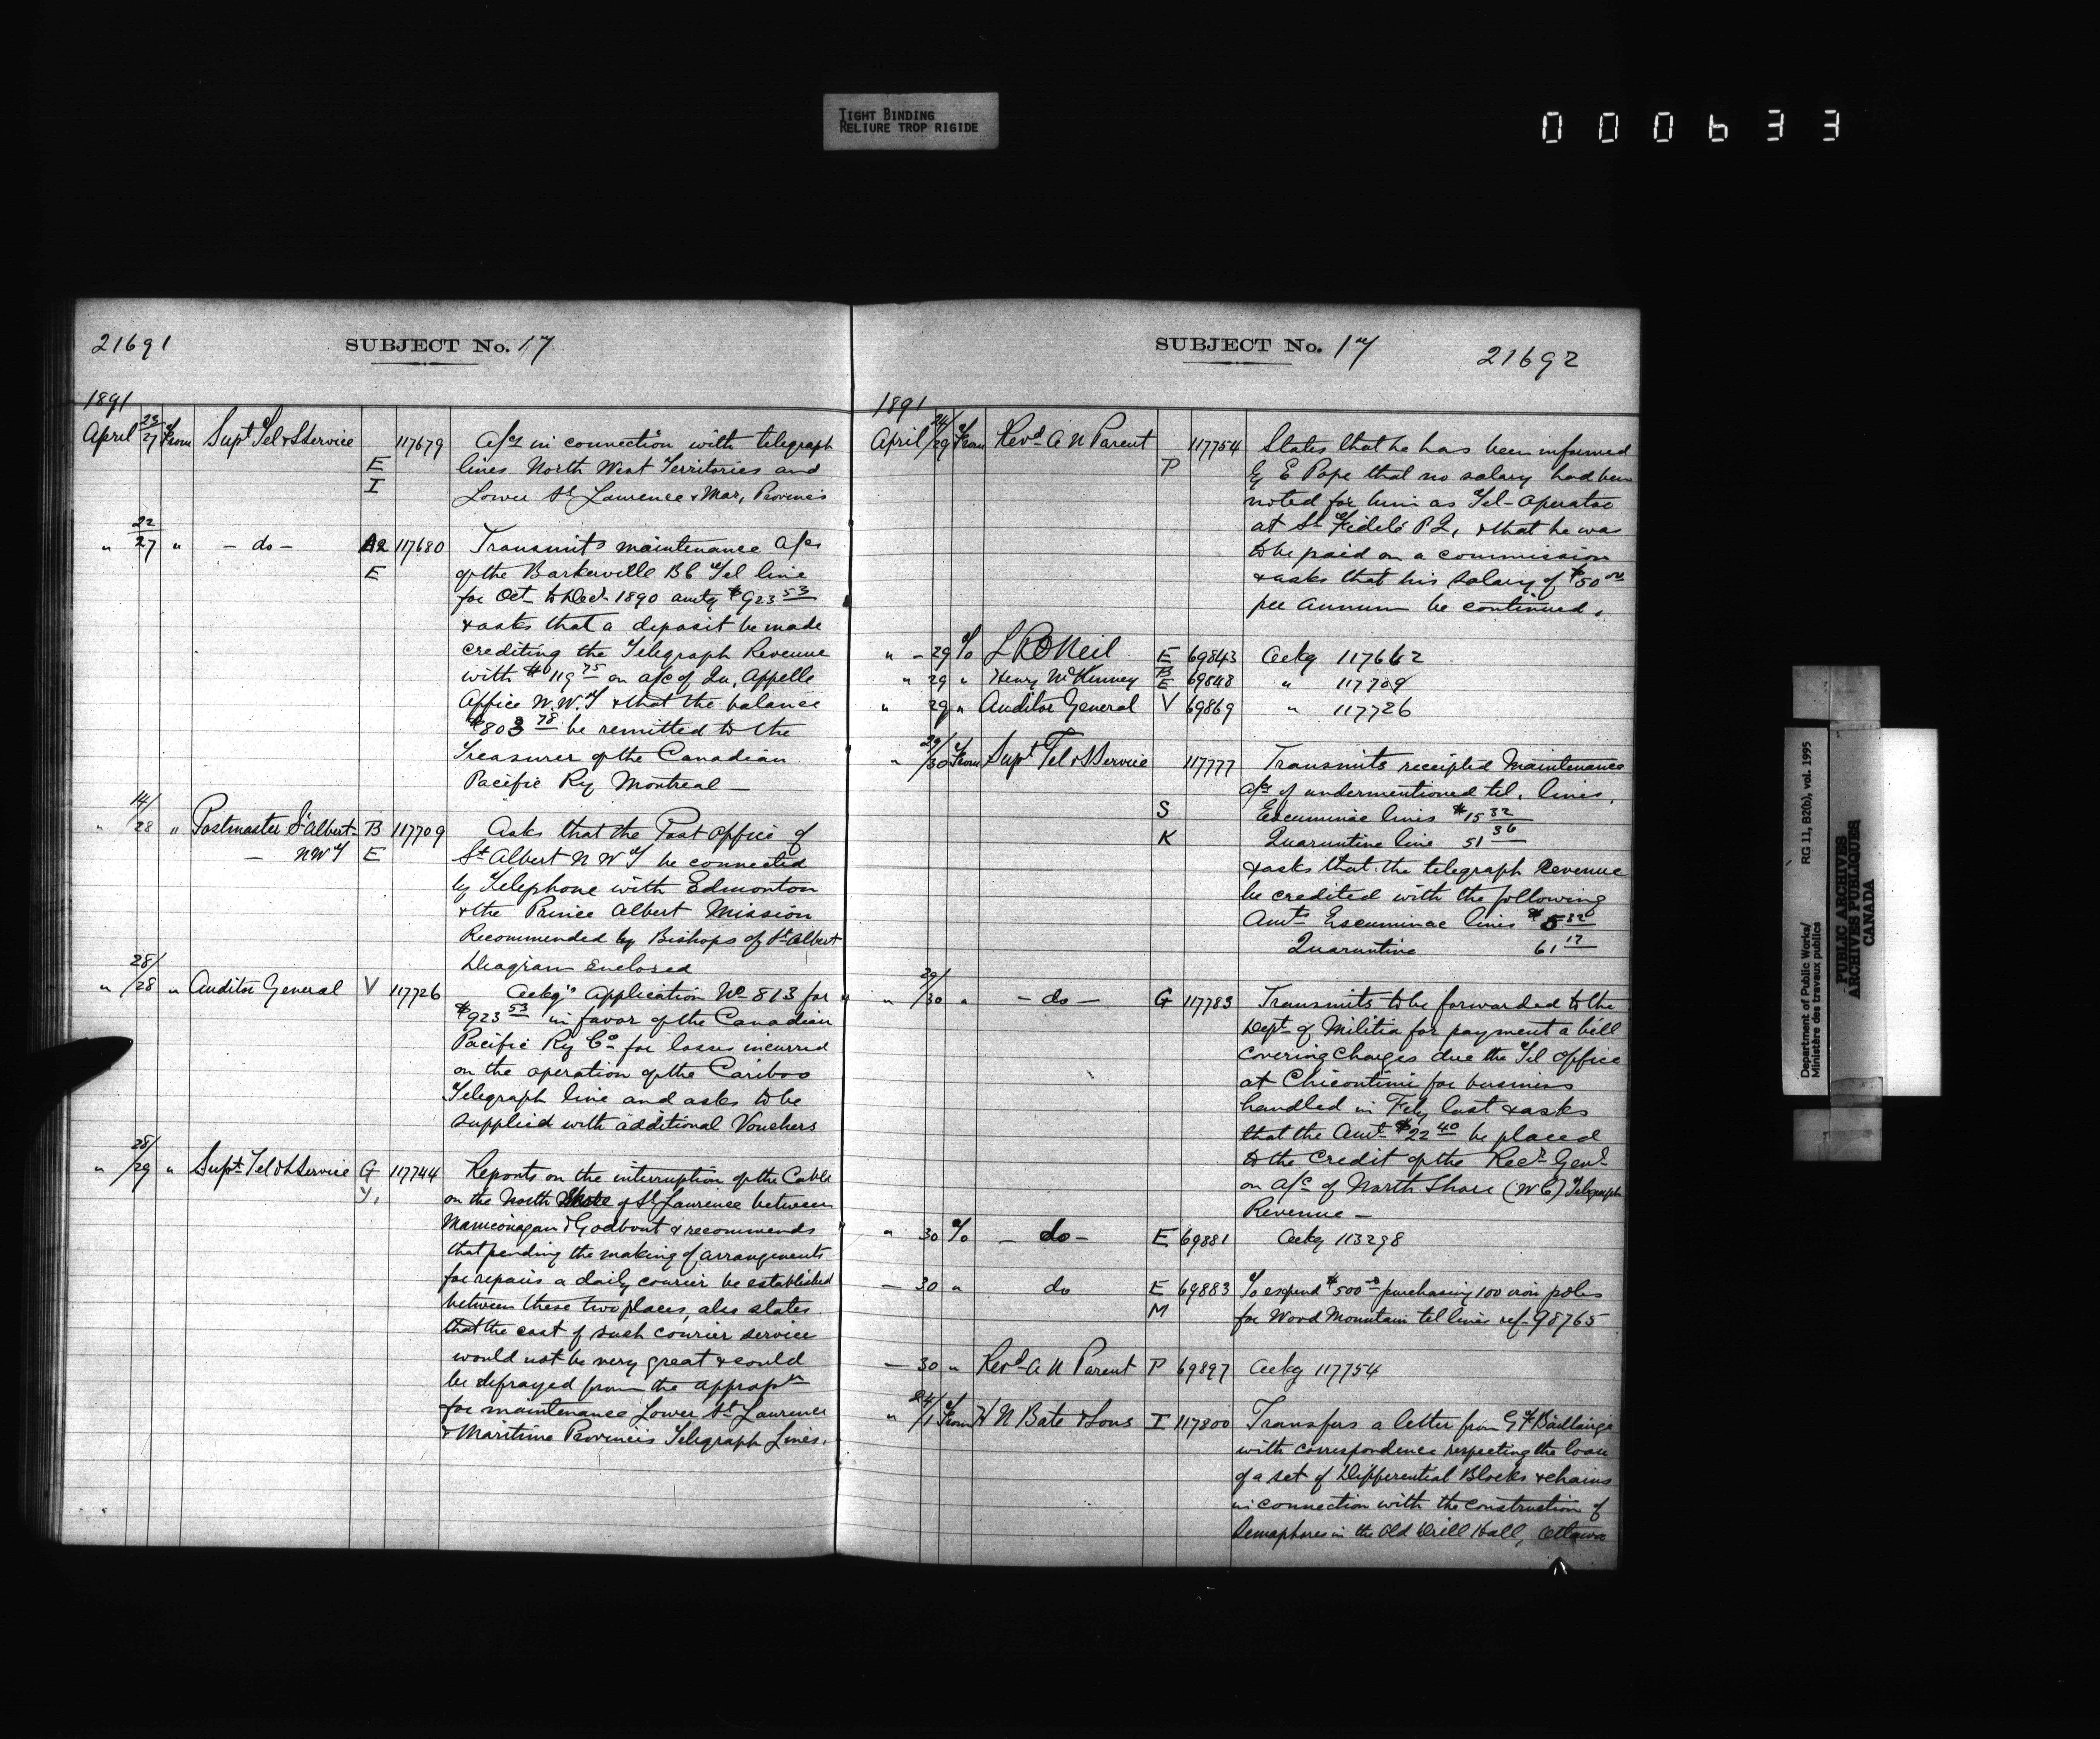 TIGHT BINDING
RELIURE TROP RIGIDE
000633
21691
SUBJECT No. 17
1891
April 23/27 From Supt Tel & S Service 117679 A/cs in connection with telegraph
E lines North West Territories and
I Lower St Laurence & Mar, Provinces
" 22/27 " - do - A2 117680 Transmits maintenance a/cs
E of the Barkerville BC Tel line
for Oct to Decr 1890 amtg $923 53
& asks that a deposit be made
crediting the Telegraph Revenue
with $119 75 on a/c of Qu, Appelle
Office N.W.T & that the balance
$803 78 be remitted to the
Treasurer of the Canadian
Pacific Ry Montreal —
" 14/28 " Postmaster St Albert - B 117709 Asks that the Post Office of
— NWT E St Albert N W T be connected
by Telephone with Edmonton
& the Prince Albert Mission
Recommended by Bishops of St Albert
Diagram enclosed
" 28/28 " Auditor General V 117726 Ackg's Application No 813 for
$923 53 in favor of the Canadian
Pacific Ry Co for losses incurred
on the operation of the Cariboo
Telegraph line and asks to be
supplied with additional Vouchers
" 28/29 " Supt Tel & S Service G 117744 Reports on the interruption of the Cable
Y, on the North Shore of St Laurence between
Manicouagan & Godbout & recommends
that pending the making of arrangements
for repairs a daily courier be established
between these two places, also states
that the cost of such courier service
would not be very great & could
be defrayed from the appropn
for maintenance Lower St Laurence
& Maritime Provinces Telegraph Lines.
SUBJECT No. 17
21692
1891
April 24/29 From Revd A N Parent 117754 States that he has been informed
P by E Pope that no salary had been
noted for him as Tel - Operator
at St Fidele P Q, & that he was
to be paid on a commission
& asks that his salary of $50 00
per annum be continued.
" - 29 To L R O Neil E 69843 Ackg 117662
" 29 " Henry McKenney B E 69848 " 117709
" 29 " Auditor General V 69869 " 117726
" 29/30 From Supt Tel & S Service 117777 Transmits receipted Maintenance
a/cs of undermentioned tel. lines.
S Escuminac lines $15 32
K Quarantine line 51 36
& asks that the telegraph Revenue
be credited with the following
Amts Escuminac lines $5 32
Quarantine 61 17
" 29/30 " - do - G 117783 Transmits to be forwarded to the
Dept of Militia for payment a bill
covering charges due the Tel Office
at Chicoutimi for business
handled in Feby last & asks
that the Amt $22 40 be placed
to the credit of the Recr Genl
on a/c of North Shore (W C) Telegraph
Revenue —
" 30 To - do - E 69881 Ackg 113298
— 30 " do E 69883 To expend $500 purchasing 100 iron poles
M for Wood Mountain tel lines ref. 98765
— 30 " Revd A N Parent P 69897 Ackg 117754
" 24/1 From H N Bate & Sons I 117800 Transfers a letter from G F Baillairge
with correspondence respecting the loan
of a set of Differential Blocks & chains
in connection with the construction of
Semaphores in the Old Drill Hall, Ottawa
Department of Public Works/ RG 11, B2(b), vol. 1995
Ministère des travaux publics
PUBLIC ARCHIVES
ARCHIVES PUBLIQUES
CANADA